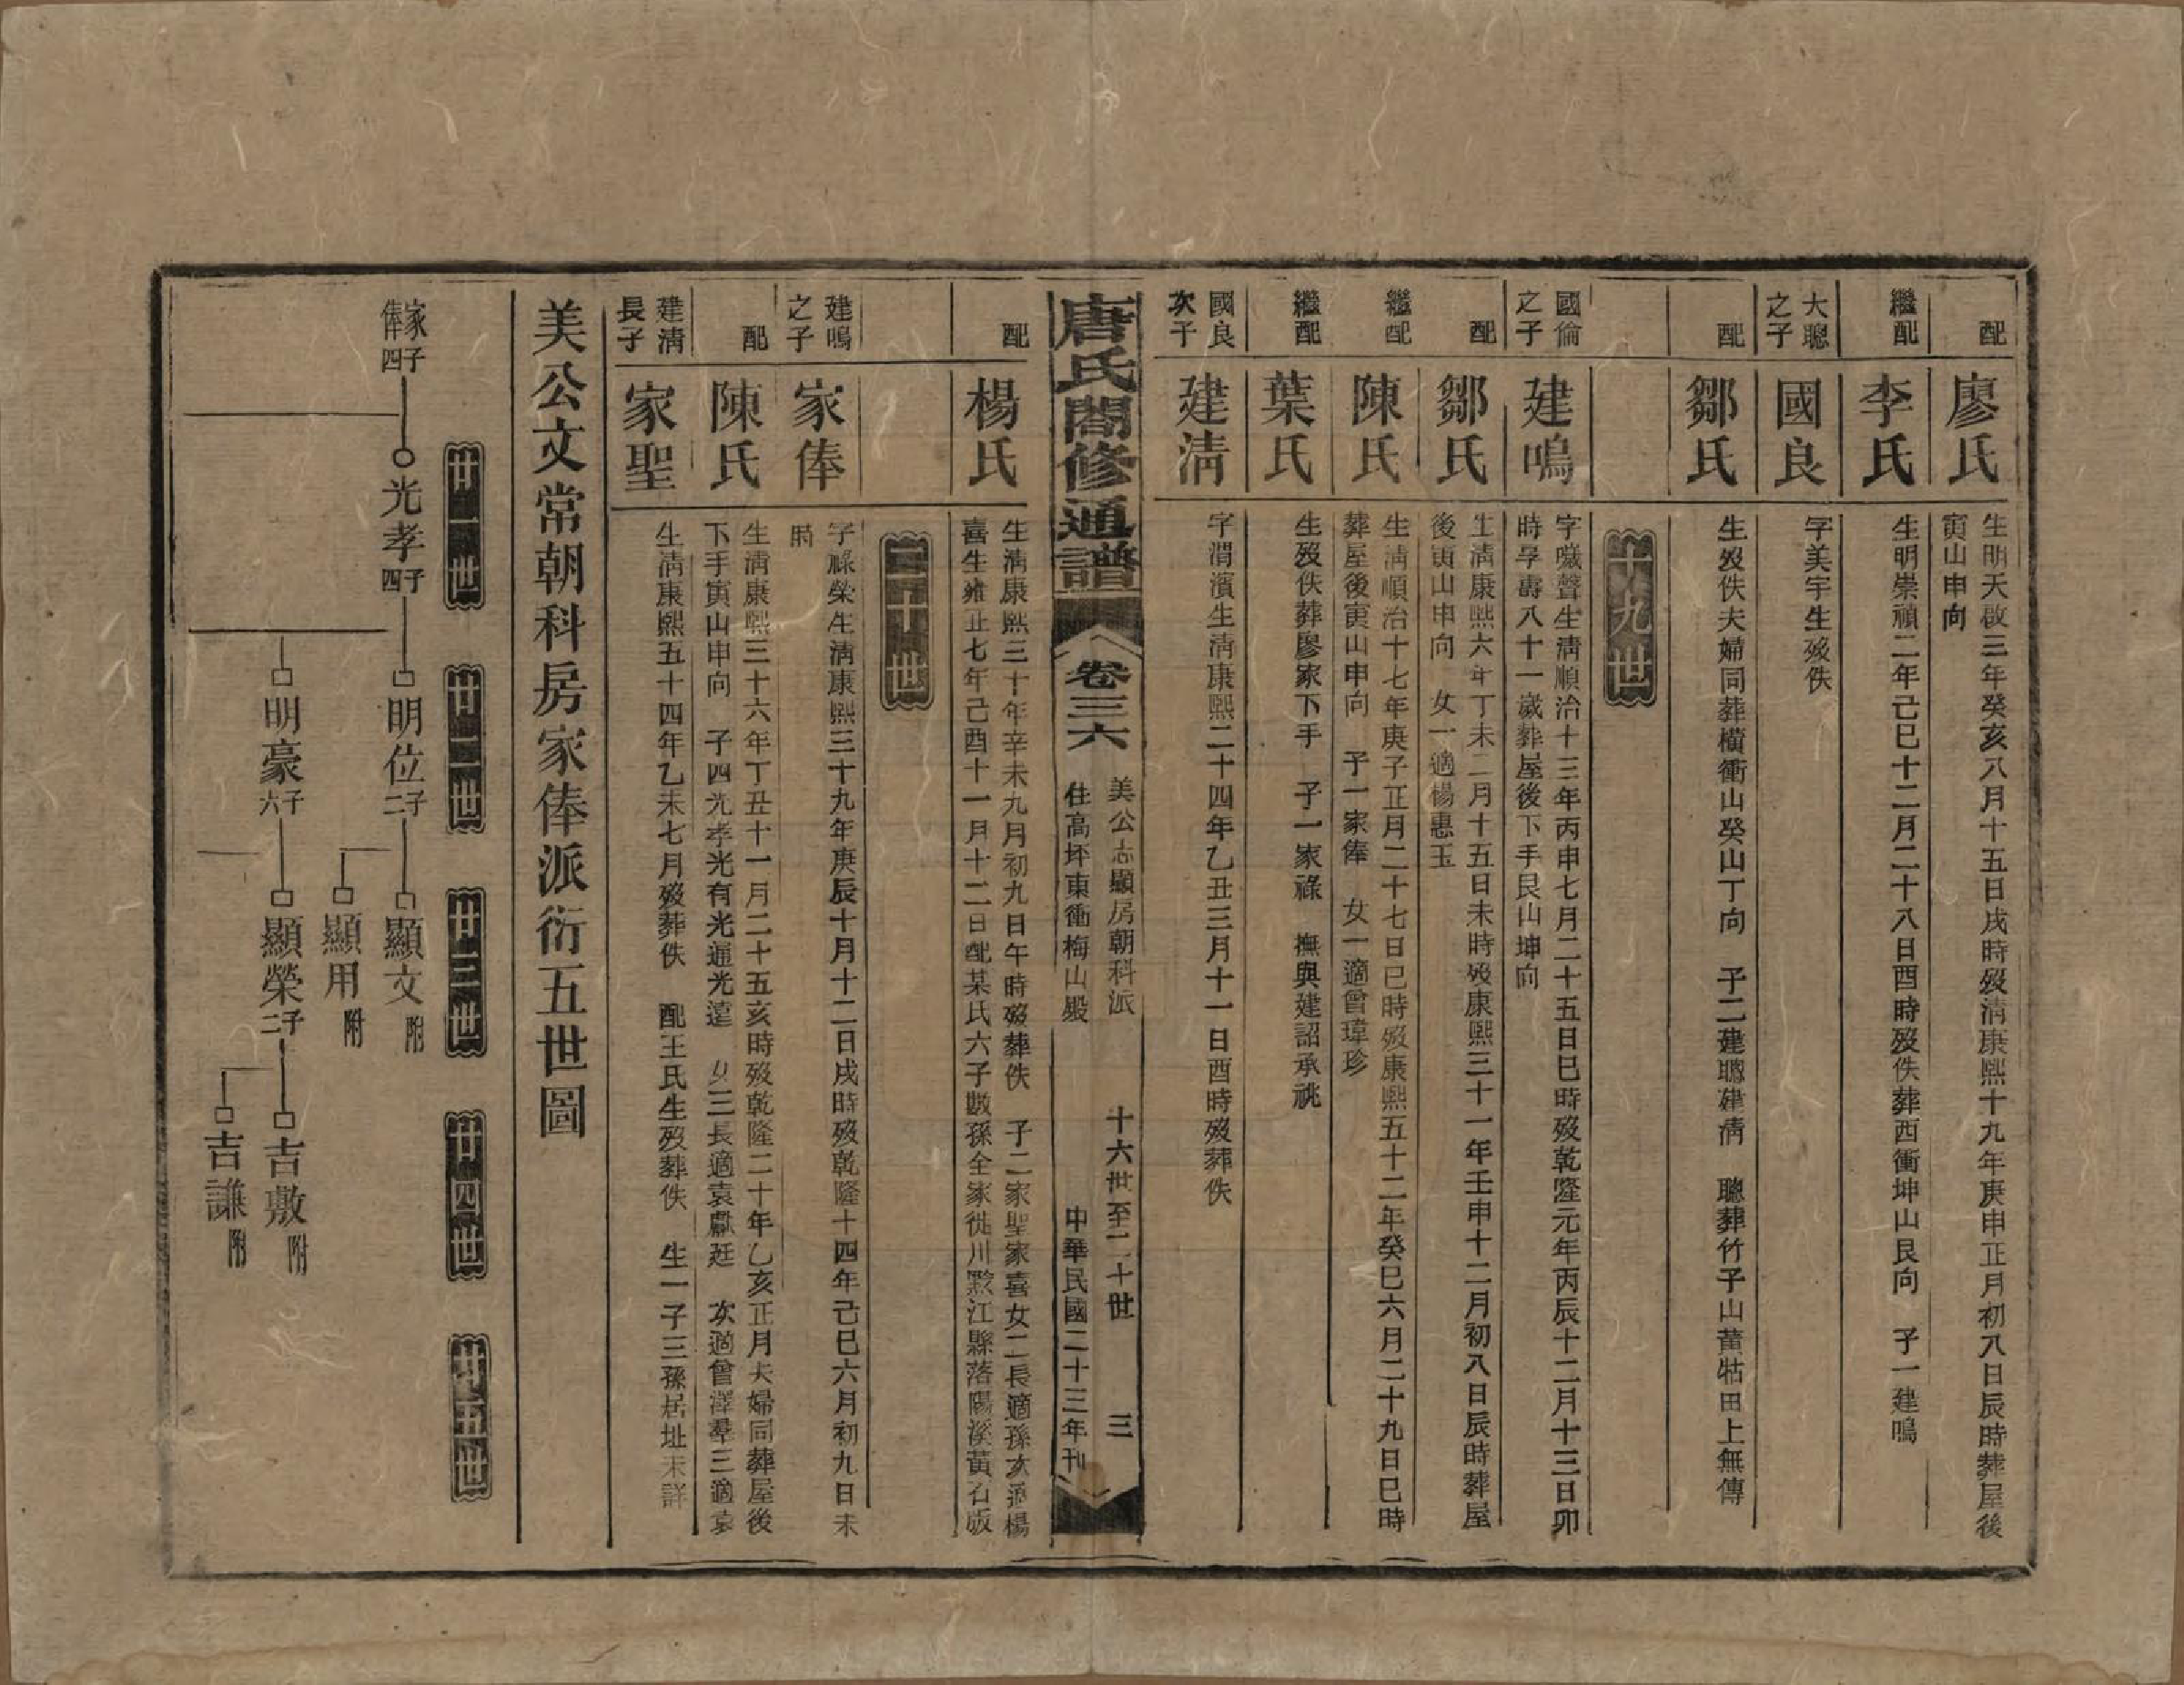 配
廖氏
生明天啟三年癸亥八月十五日戌時歿清康熙十九年庚申正月初八日辰時葬屋後
寅山申向
繼配
李氏
生明崇禎二年己巳十二月二十八日酉時歿佚葬西衝坤山艮向　子一建鳴
大聰之子
國良
字美宇生歿佚
配
鄒氏
生歿佚夫婦同葬橫衝山癸山丁向　子二建聰建清　聰葬竹子山黃牯田上無傳
十九世
國倫之子
建鳴
字噦聲生清順治十三年丙申七月二十五日巳時歿乾隆元年丙辰十二月十三日卯
時享壽八十一歲葬屋後下手艮山坤向
配
鄒氏
生清康熙六年丁未二月十五日未時歿康熙三十一年壬申十二月初八日辰時葬屋
後寅山申向　女一適楊惠玉
繼配
陳氏
生清順治十七年庚子正月二十七日巳時歿康熙五十二年癸巳六月二十九日巳時
葬屋後寅山申向　子一家俸　女一適曾瑋珍
繼配
葉氏
生歿佚葬廖家下手　子一家祿　撫與建詔承祧
國良次子
建清
字渭濱生清康熙二十四年乙丑三月十一日酉時歿葬佚
唐氏閤修通譜
卷三六
美公志顯房朝科派　十六世至二十世　三
住高坪東衝梅山殿　中華民國二十三年刊
配
楊氏
生清康熙三十年辛未九月初九日午時歿葬佚　子二家聖家喜女二長適孫次適楊
喜生雍正七年己酉十一月十二日配某氏六子數孫全家徙川黔江縣落陽溪黃石版
二十世
建鳴之子
家俸
字祿榮生清康熙三十九年庚辰十月十二日戌時歿乾隆十四年己巳六月初九日未
時
配
陳氏
生清康熙三十六年丁丑十一月二十五亥時歿乾隆二十年乙亥正月夫婦同葬屋後
下手寅山申向　子四光孝光有光通光遠　女三長適袁獻廷　次適曾澤羣三適袁
建清長子
家聖
生清康熙五十四年乙未七月歿葬佚　配王氏生歿葬佚　生一子三孫居址未詳
美公文常朝科房家俸派衍五世圖
廿一世　廿二世　廿三世　廿四世　廿五世
家俸 子四
光孝 子四
明位 子二
顯文 附
顯用 附
明豪 子六
顯榮 子二
吉敷 附
吉謙 附